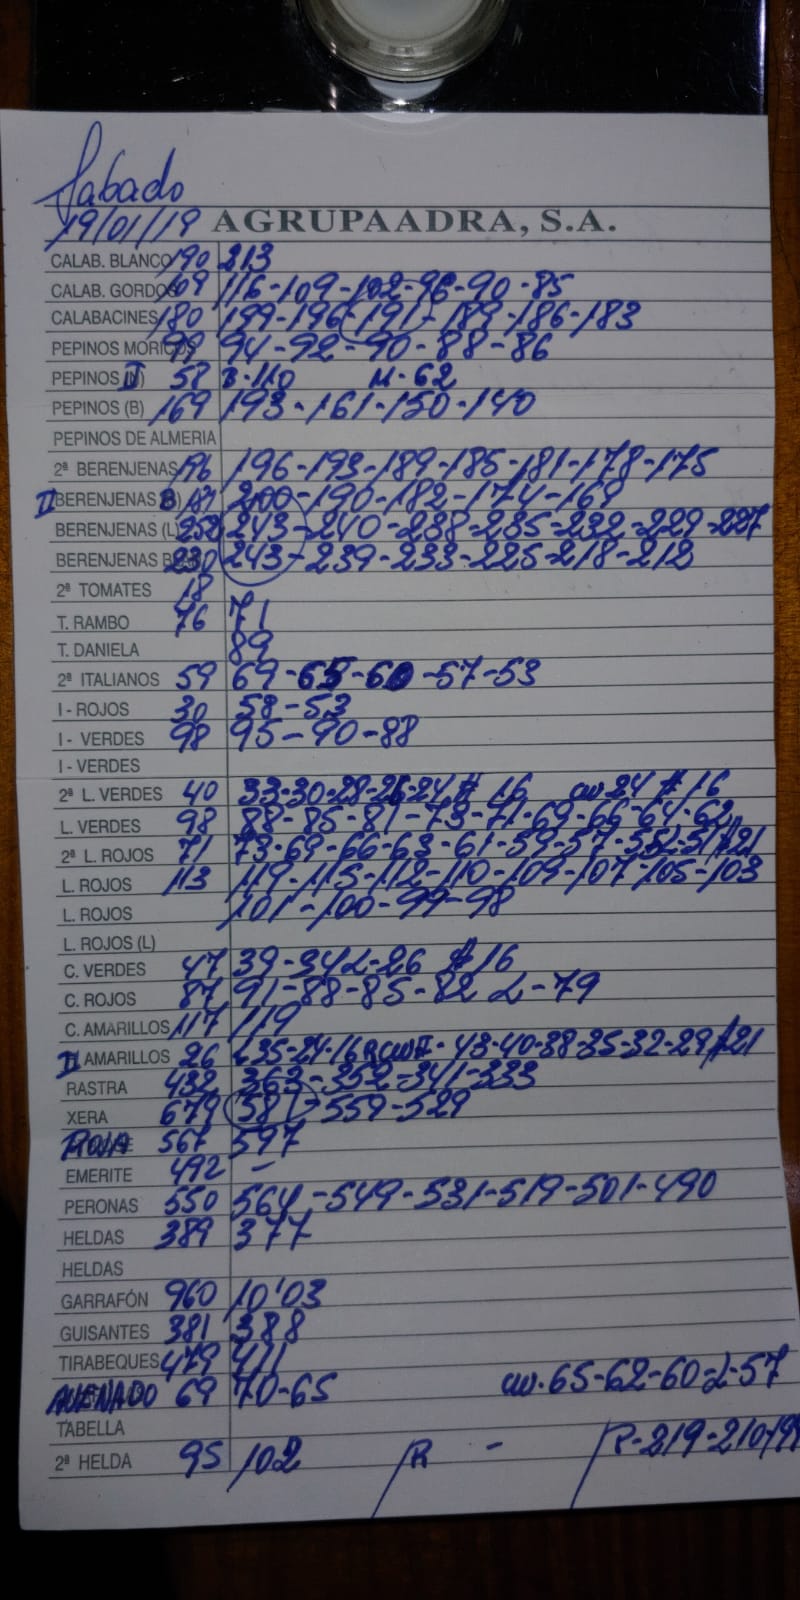 Sabado
19/01/19 AGRUPAADRA, S.A.
CALAB. BLANCO 190 213
CALAB. GORDO 109 116-109-102-96-90-85
CALABACINES 180 199-196-191-189-186-183
PEPINOS MORICOS 99 94-92-90-88-86
PEPINOS II 58 B-110 M-62
PEPINOS (B) 169 193-161-150-140
PEPINOS DE ALMERIA
2ª BERENJENAS 196 196-193-189-185-181-178-175
II BERENJENAS B 200-190-182-174-169
BERENJENAS (L) 252 243-240-238-235-232-229-227
BERENJENAS 230 243-239-233-225-218-212
2ª TOMATES 18
T. RAMBO 76 71
T. DANIELA 89
2ª ITALIANOS 59 69-65-60-57-53
I - ROJOS 30 58-53
I - VERDES 98 95-90-88
I - VERDES
2ª L. VERDES 40 33-30-28-26-24 # 16 cw 24 # 16
L. VERDES 98 88-85-81-73-71-69-66-64-62
2ª L. ROJOS 71 73-69-66-63-61-59-57-552-51#21
L. ROJOS 113 119-115-112-110-109-107-105-103
L. ROJOS 101-100-99-98
L. ROJOS (L)
C. VERDES 47 39-34L-26 # 16
C. ROJOS 87 91-88-85-82 L-79
C. AMARILLOS 117 119
II AMARILLOS 26 35-24-16 43-40-38-35-32-29#21
RASTRA 432 363-352-341-333
XERA 679 581-559-529
ROJA 567 597
EMERITE 492 -
PERONAS 550 564-549-531-519-501-490
HELDAS 389 377
HELDAS
GARRAFÓN 960 10'03
GUISANTES 381 388
TIRABEQUES 479 411
AVENADO 69 70-65 cw. 65-62-60-L-57
TABELLA
2ª HELDA 95 102 /R - /P-219-210-19